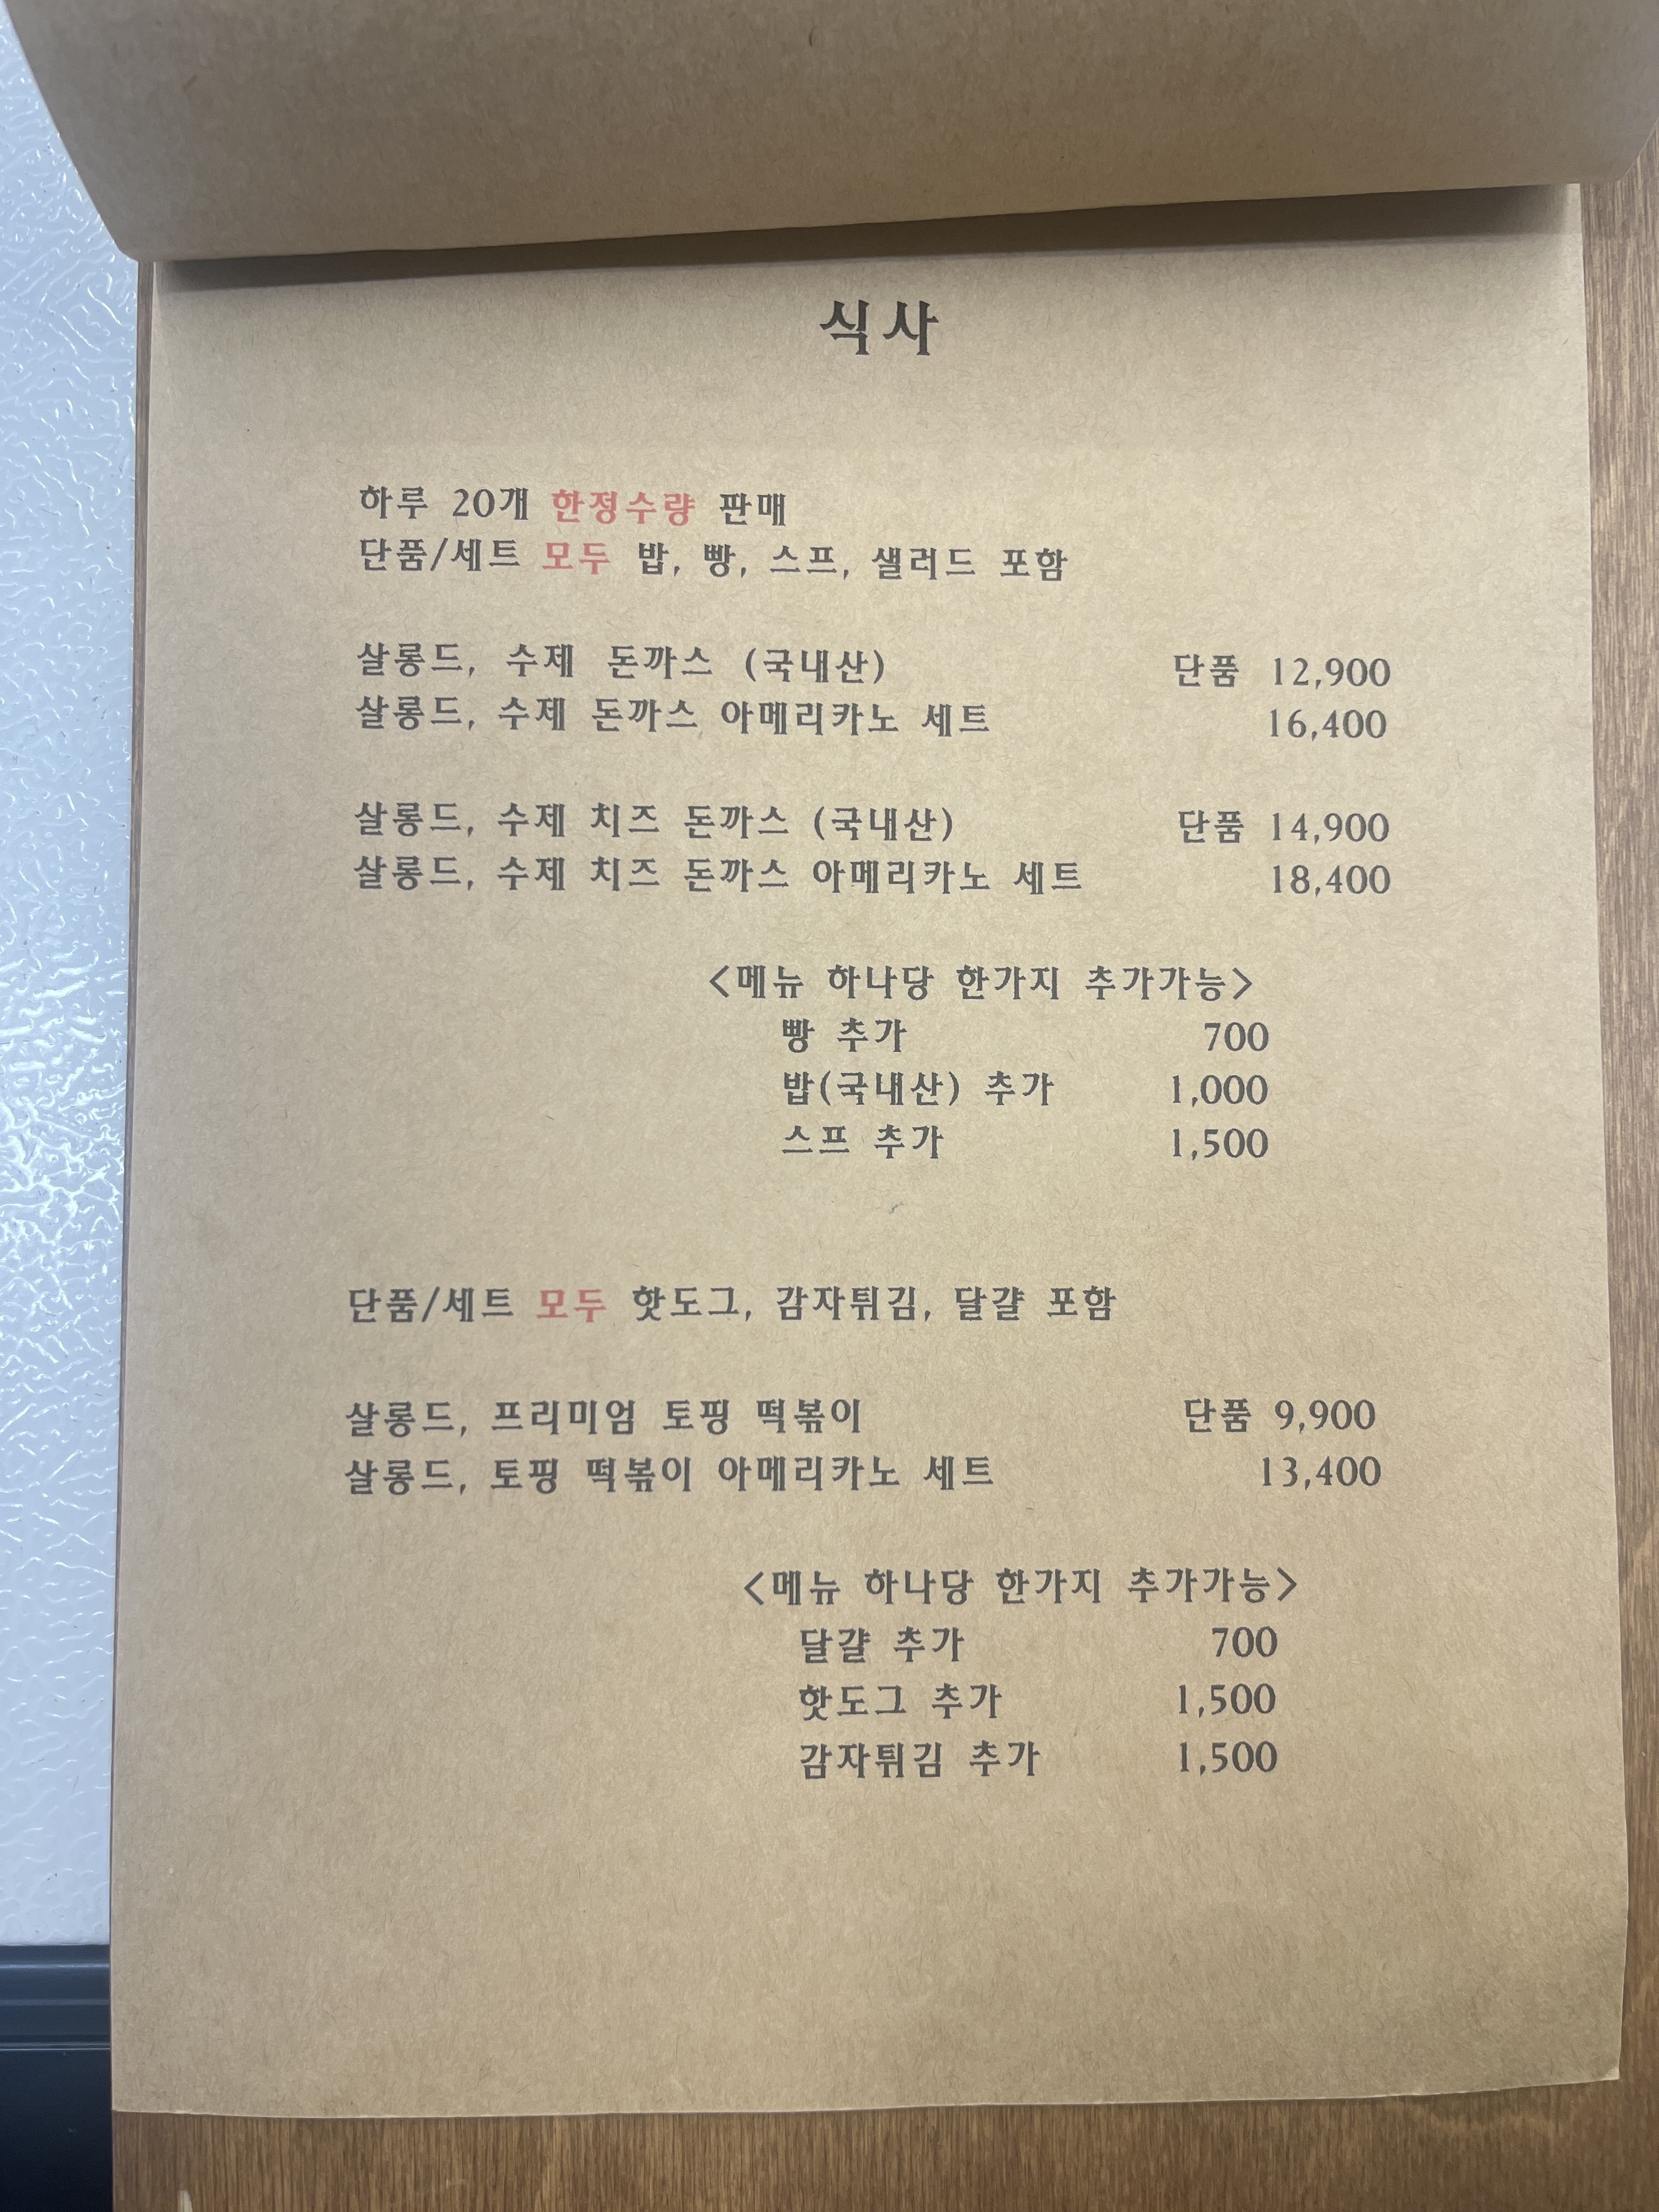 식사
하루 20개 한정수량 판매
단품/세트 모두 밥, 빵, 스프, 샐러드 포함
살롱드, 수제 돈까스 (국내산) 단품 12,900
살롱드, 수제 돈까스 아메리카노 세트 16,400
살롱드, 수제 치즈 돈까스 (국내산) 단품 14,900
살롱드, 수제 치즈 돈까스 아메리카노 세트 18,400
<메뉴 하나당 한가지 추가가능>
빵 추가 700
밥(국내산) 추가 1,000
스프 추가 1,500
단품/세트 모두 핫도그, 감자튀김, 달걀 포함
살롱드, 프리미엄 토핑 떡볶이 단품 9,900
살롱드, 토핑 떡볶이 아메리카노 세트 13,400
<메뉴 하나당 한가지 추가가능>
달걀 추가 700
핫도그 추가 1,500
감자튀김 추가 1,500